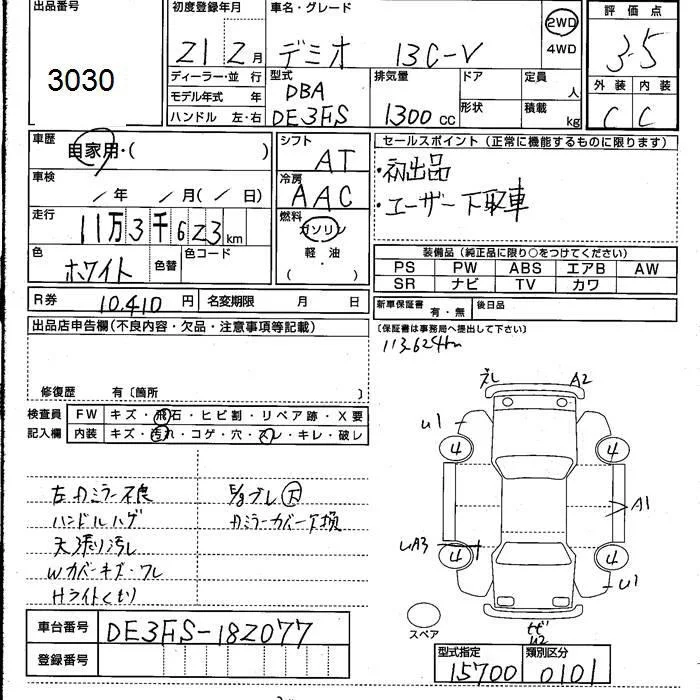 出品番号
3030
初度登録年月
21 2月
車名・グレード
デミオ 13C-V
2WD
4WD
評価点
3.5
外装 内装
C C
ディーラー・並行
モデル年式 年
ハンドル 左・右
型式
DBA
DE3FS
排気量
1300cc
ドア
形状
定員
人
積載
kg
車歴
自家用・( )
車検
/年 /月(/日)
走行
11万3千623km
色
ホワイト
色替
色コード
シフト
AT
冷房
AAC
燃料
ガソリン
軽・油
(・)
セールスポイント(正常に機能するものに限ります)
・初出品
・ユーザー下取車
装備品(純正品に限り○をつけてください)
PS PW ABS エアB AW
SR ナビ TV カワ
新車保証書
有・無
後日品
(保証書は事務局へ提出して下さい)
R券 10,410円
名変期限 月 日
出品店申告欄(不良内容・欠品・注意事項等記載)
修復歴 有〔箇所 〕
113,624km
検査員
記入欄
FW キズ・飛石・ヒビ割・リペア跡・X要
内装 キズ・汚れ・コゲ・穴・スレ・キレ・破レ
左Dミラー不良
ハンドルハゲ
天張り汚レ
Wカバーキズ・ワレ
Hライトくもり
Dミラーカバー下損
A2
U1
4 4
A1
UA3
4 4
U1
U2
スペア
車台番号
DE3FS-182077
登録番号
型式指定
15700
類別区分
0101